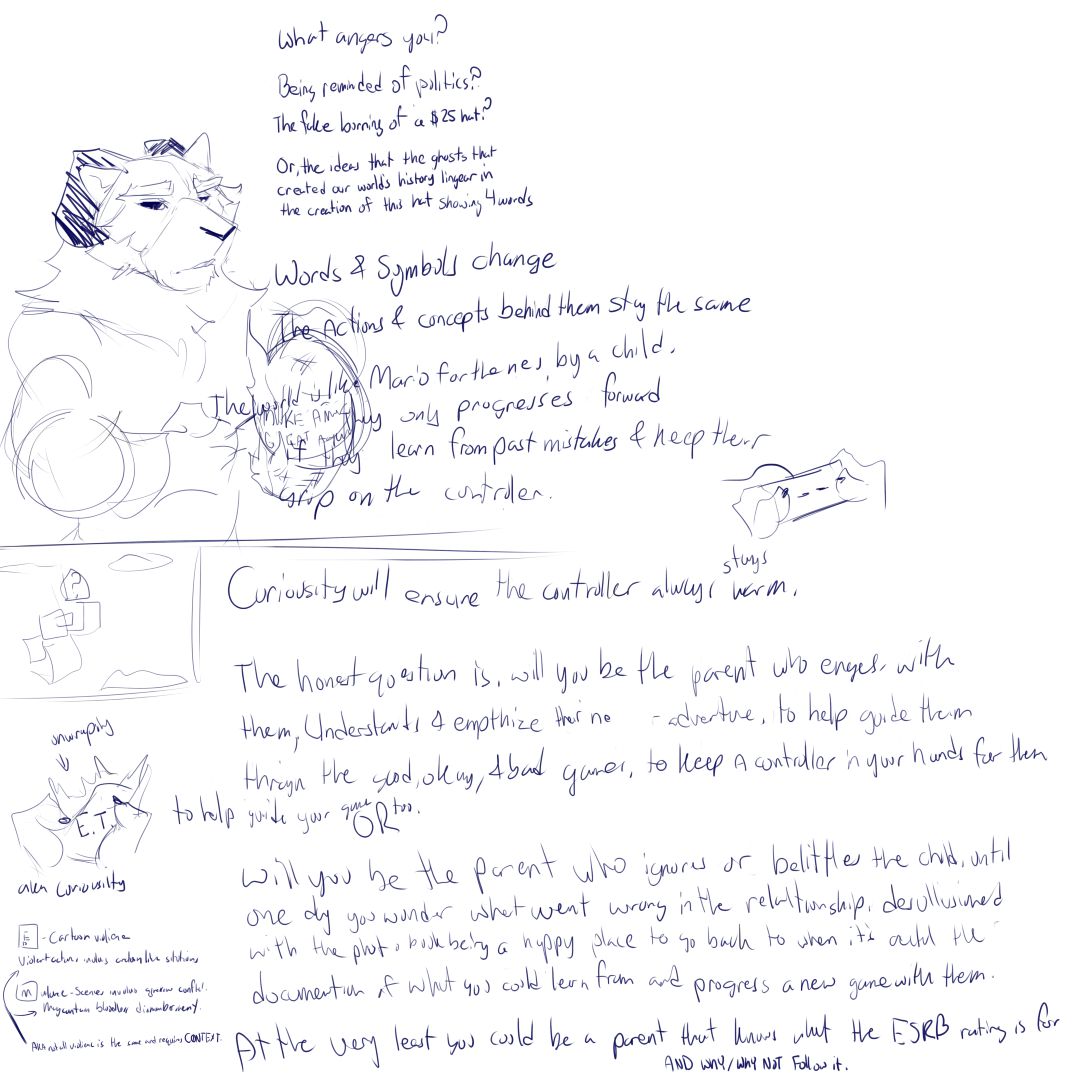 What angers you?
Being reminded of politics?
The fake burning of a $25 hat?
Or, the ideas that the ghosts that
created our world's history lingear in
the creation of this hat showing 4 words
Words & Symbols change
The Actions & concepts behind them stay the same
The world is like Mario for the nes, by a child.
They only progresses forward
If they learn from past mistakes & keep their
grip on the controler.
stays
Curiousity will ensure the controller always warm.
The honest question is, will you be the parent who enges with
them, Understants & empthize their ne - adventure, to help guide them
the good, okay, & bad games, to keep A controller in your hands for them
to help guide your game too.
OR
unwraping
E.T.
aka Curiousilty
Will you be the parent who ignores or belittles the child, until
one day you wonder what went wrong in the relationship, desullusioned
with the photo book being a happy place to go back to when it's the
of what you could learn from and progress a new game with them.
- Cartoon violence
M
bloodless dismemberment.
not all violence is the same and requires CONTEXT.
At the very least you could be a parent that knows what the ESRB rating is for
AND WHY/WHY NOT Follow it.